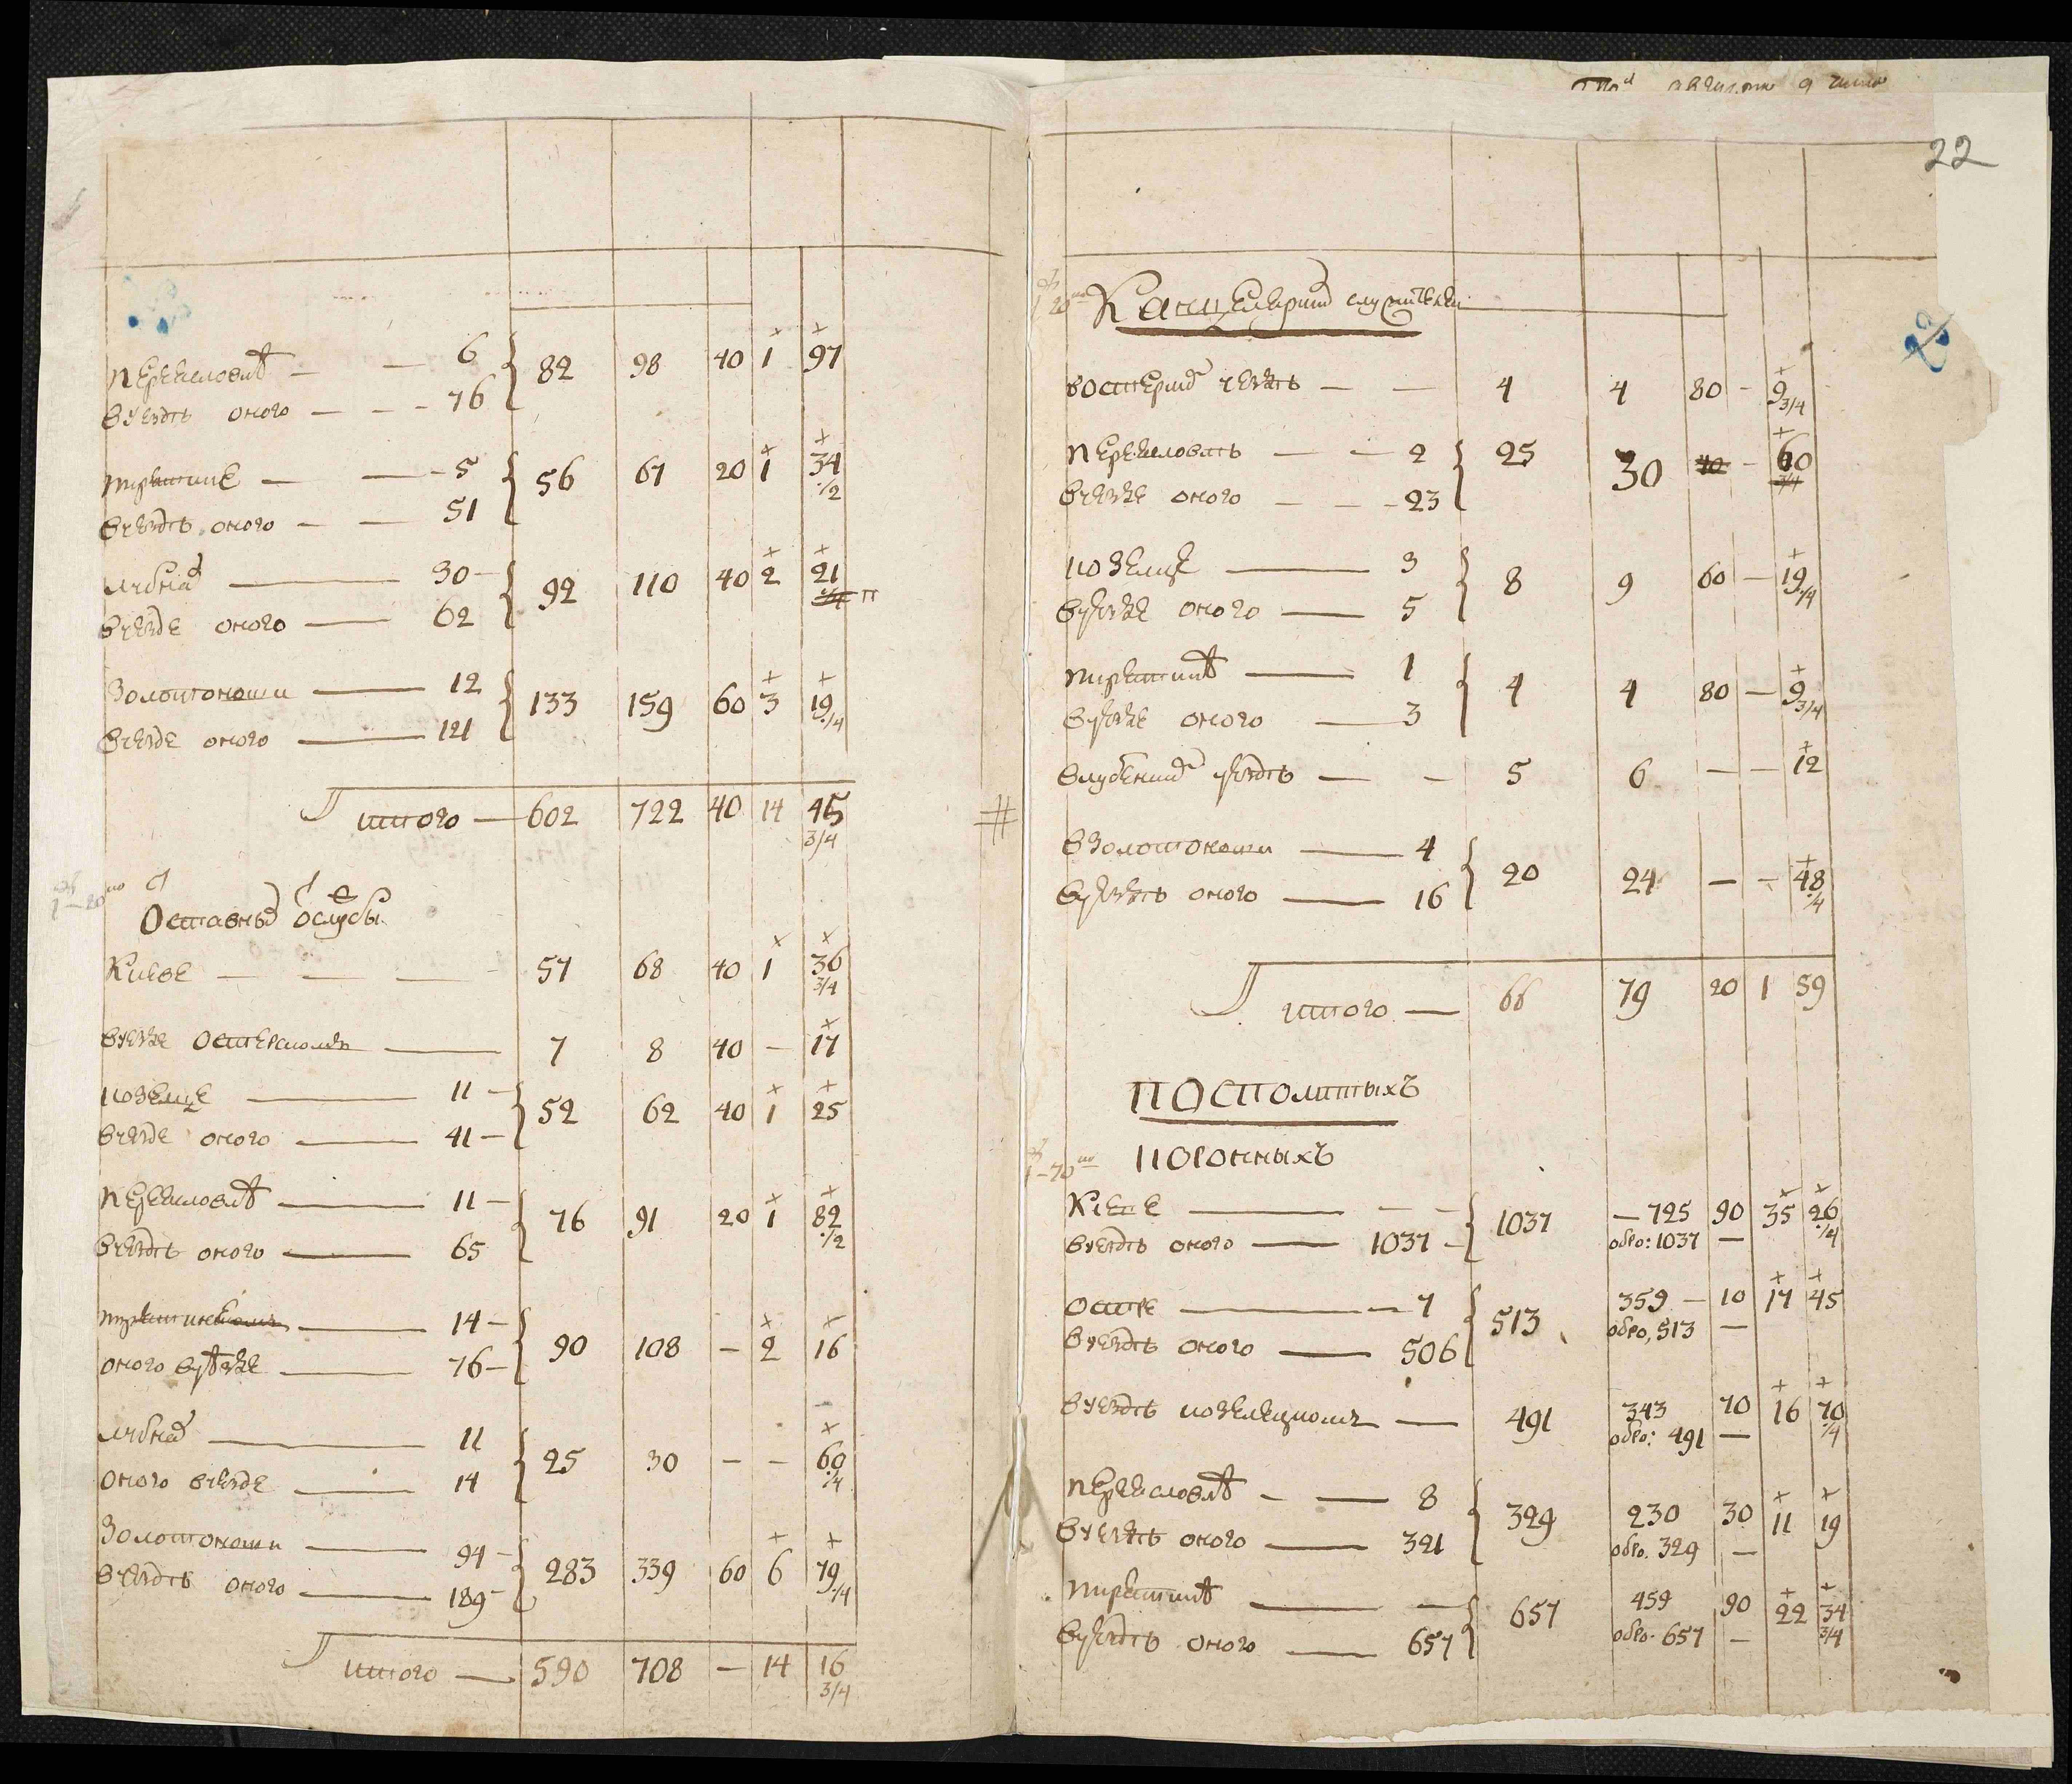 Переяславлѣ — — 6 82 98 40 1 97
Вуездѣ оного — — 76
Пирятине — — 5 56 67 20 1 34 1/2
Вуездѣ оного — — 51
Лубнах — 30 92 110 40 2 21
Вуезде оного — 62
Золотоноши — 12 133 159 60 3 19 1/4
Вуезде оного — 121
Итого — 602 722 40 14 45 3/4
Киеве — — — 57 68 40 1 36 3/4
Вуезде Остерскомъ — 7 8 40 — 17
Козелце — 11 52 62 40 1 25
Вуезде оного — 41
Переяславлѣ — 11 76 91 20 1 82 1/2
Вуездѣ оного — 65
14 90 108 — 2 16
Оного вуѣзде — 76
Лубнах — 11 25 30 — — 60 1/4
Оного вуезде — 14
Золотоноши — 94 283 339 60 6 79 1/4
Вуездѣ оного — 189
Итого — 590 708 — 14 16 3/4
22
Канцелярких служителей
Востерких уездѣ — — 4 4 80 — 9 3/4
Переяславлѣ — — 2 25 30 — 60
Вуезде оного — — 23
Козелце — 3 8 9 60 — 19 1/4
Вуезде оного — 5
Пирятинѣ — 1 4 4 80 — 9 3/4
Вуезде оного — 3
уездѣ — — 5 6 — — 12
Взолотоноши — 4 20 24 — — 48 1/4
Вуездѣ оного — 16
Итого — 66 79 20 1 59
Посполитыхъ
Коронныхъ
Киеве — — — 1037 — 725 90 35 26 1/4
Вуездѣ оного — 1037 обро: 1037 —
Остре — 7 513 359 — 10 17 45
Вуездѣ оного — 506 обро, 513 —
Вуездѣ козелецкомъ — 491 343 70 16 70 1/4
обро: 491 —
Переяславлѣ — — 8 329 230 30 11 19
Вуездѣ оного — 321 обро. 329 —
Пирятинѣ — — 657 459 90 22 34 3/4
Вуездѣ оного — 657 обро. 657 —